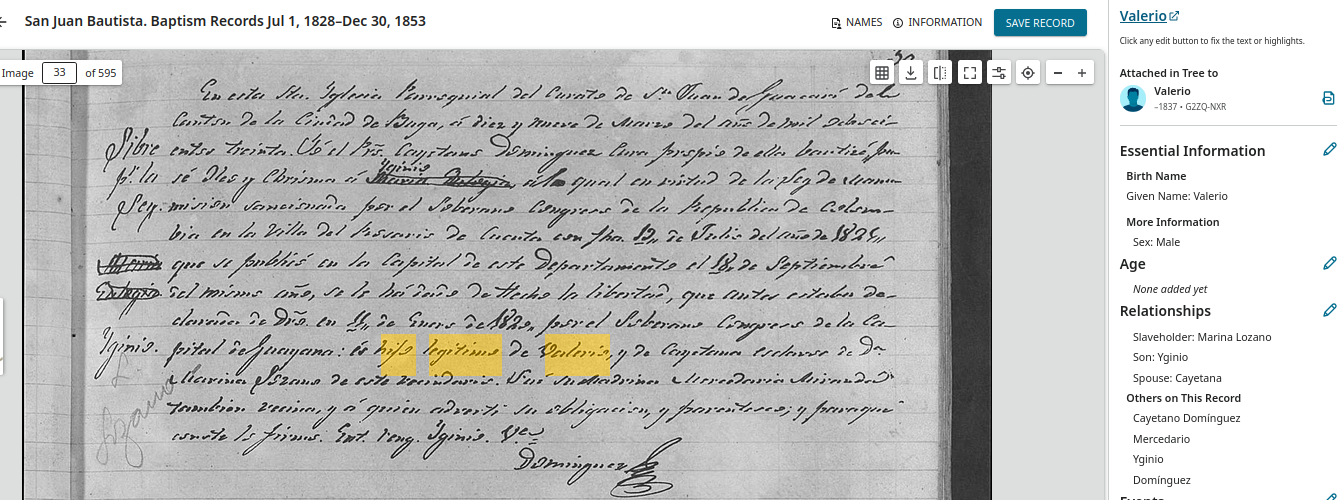 San Juan Bautista. Baptism Records Jul 1, 1828–Dec 30, 1853
NAMES
INFORMATION
SAVE RECORD
Image 33 of 595
En esta Sta. Yglesia Parroquial del Curato de Sn. Juan de Guacarí de la
Canton de la Ciudad de Buga, á diez y nueve de Marzo del año de mil ochoci-
entos treinta. Yó el Pro. Cayetano Dominguez Cura propio de ella bautizé, pu-
Yginio
se Oleo y Chrisma á qual en virtud de la Ley de manu-
mision sancionada por el Soberano Congreso de la Republica de Colom-
bia en la Villa del Rosario de Cucuta con fha. 19,, de Julio del año de 1821,,
que se publicó en la Capital de este Departamento el 18,, de Septiembre
del mismo año, se le há dado de hecho la libertad, que antes estaba de-
clarada de Dro. en 11,, de Enero de 1820,, por el Soberano Congreso de la Ca-
pital de Guayana: és hijo legitimo de Valerio, y de Cayetana esclavos de Da.
Marina Lozano de este vecindario. Fué su madrina Mercedaria Miranda
tambien vecina, y á quien advertí su obligacion, y parentesco; y para que
conste lo firmo. Ent. reng. Yginio. Ve.
Dominguez
Libre
pr. la
Ley.
Yginio.
Lozano
Valerio
Click any edit button to fix the text or highlights.
Attached in Tree to
Valerio
–1837 • G2ZQ-NXR
Essential Information
Birth Name
Given Name: Valerio
More Information
Sex: Male
Age
None added yet
Relationships
Slaveholder: Marina Lozano
Son: Yginio
Spouse: Cayetana
Others on This Record
Cayetano Domínguez
Mercedario
Yginio
Domínguez
Events